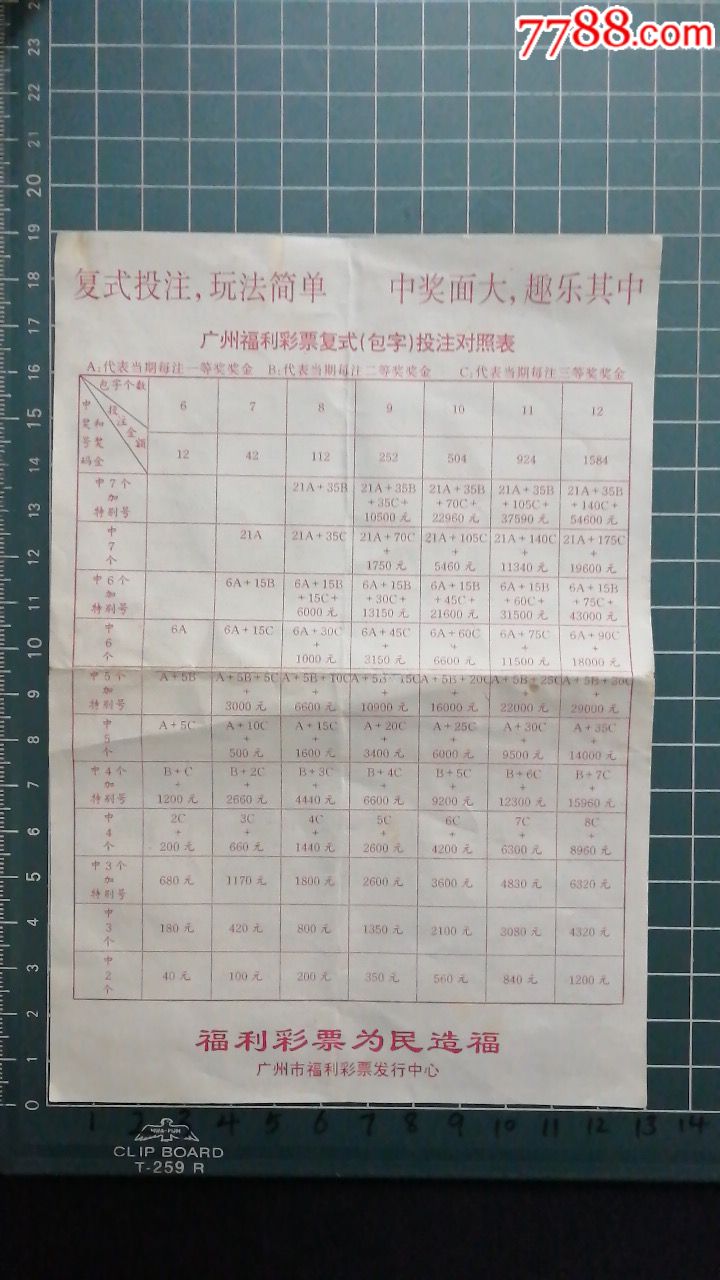 7788.com
复式投注,玩法简单 中奖面大,趣乐其中
广州福利彩票复式(包字)投注对照表
A:代表当期每注一等奖奖金 B:代表当期每注二等奖奖金 C:代表当期每注三等奖奖金
包字个数 投注金额 中奖号码和奖金
6 7 8 9 10 11 12
12 42 112 252 504 924 1584
中7个加特别号 21A+35B 21A+35B+35C+10500元 21A+35B+70C+22960元 21A+35B+105C+37590元 21A+35B+140C+54600元
中7个 21A 21A+35C 21A+70C+1750元 21A+105C+5460元 21A+140C+11340元 21A+175C+19600元
中6个加特别号 6A+15B 6A+15B+15C+6000元 6A+15B+30C+13150元 6A+15B+45C+21600元 6A+15B+60C+31500元 6A+15B+75C+43000元
中6个 6A 6A+15C 6A+30C+1000元 6A+45C+3150元 6A+60C+6600元 6A+75C+11500元 6A+90C+18000元
中5个加特别号 A+5B A+5B+5C+3000元 A+5B+10C+6600元 A+5B+15C+10900元 A+5B+20C+16000元 A+5B+25C+22000元 A+5B+30C+29000元
中5个 A+5C A+10C+500元 A+15C+1600元 A+20C+3400元 A+25C+6000元 A+30C+9500元 A+35C+14000元
中4个加特别号 B+C+1200元 B+2C+2660元 B+3C+4440元 B+4C+6600元 B+5C+9200元 B+6C+12300元 B+7C+15960元
中4个 2C+200元 3C+660元 4C+1440元 5C+2600元 6C+4200元 7C+6300元 8C+8960元
中3个加特别号 680元 1170元 1800元 2600元 3600元 4830元 6320元
中3个 180元 420元 800元 1350元 2100元 3080元 4320元
中2个 40元 100元 200元 350元 560元 840元 1200元
福利彩票为民造福
广州市福利彩票发行中心
23
22
21
20
19
18
17
16
15
14
13
12
11
10
9
8
7
6
5
4
3
2
1
0
1 2 3 4 5 6 7 8 9 10 11 12 13 14
CLIP BOARD
T-259 R